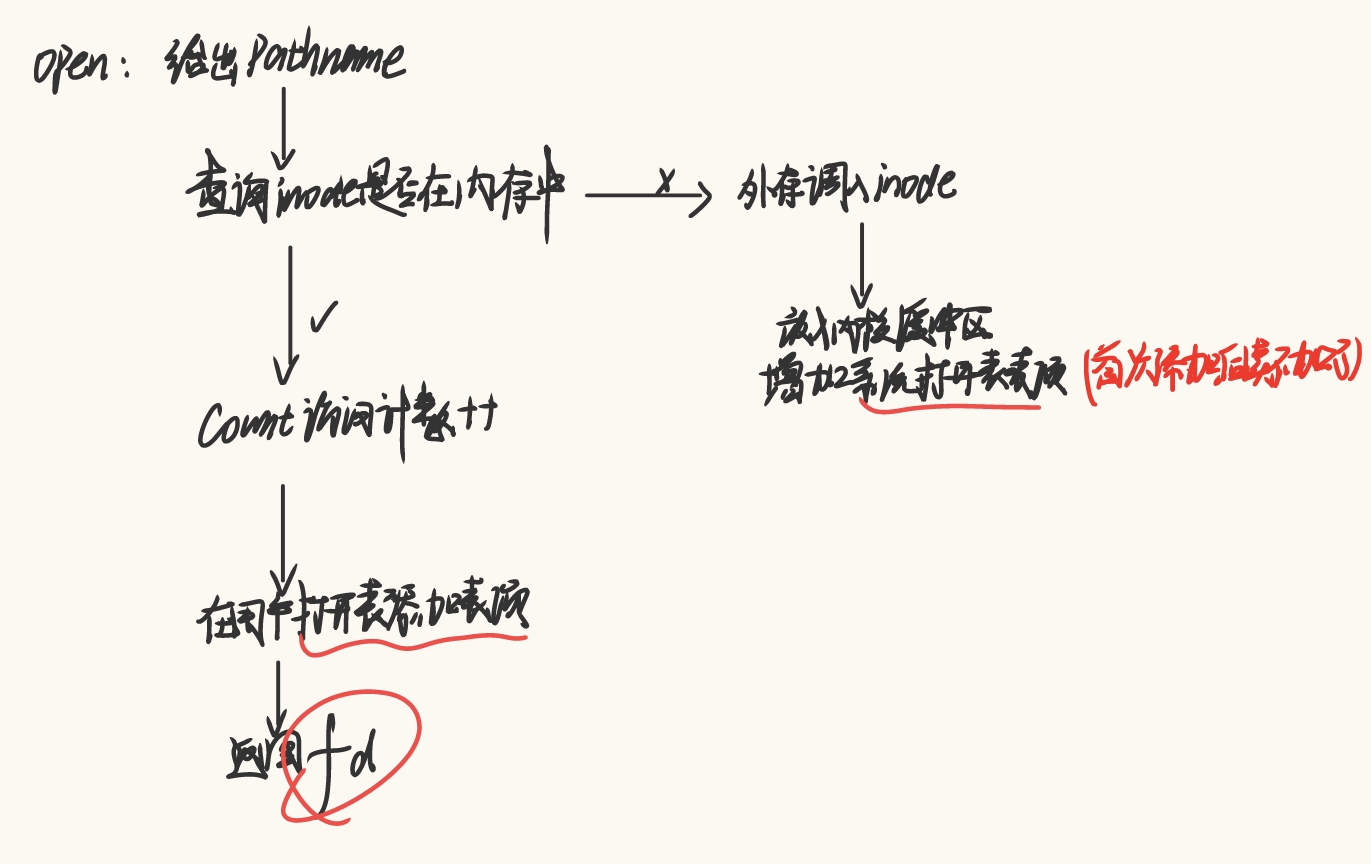 open: 给出Pathname
查询inode是否在内存中
x
外存调入inode
放入内核缓冲区
增加系统打开表表项
✓
Count访问计数++
在用户打开表添加表项
返回fd